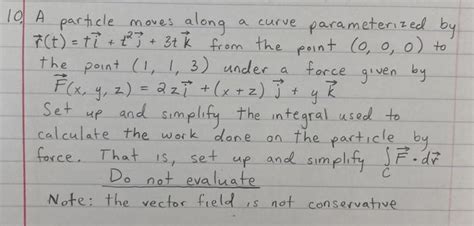 10. A particle moves along a curve parameterized by
r⃗(t) = t i⃗ + t² j⃗ + 3t k⃗ from the point (0, 0, 0) to
the point (1, 1, 3) under a force given by
F⃗(x, y, z) = 2z i⃗ + (x + z) j⃗ + y k⃗
Set up and simplify the integral used to
calculate the work done on the particle by
force. That is, set up and simplify ∫_C F⃗ · dr⃗
Do not evaluate
Note: the vector field is not conservative